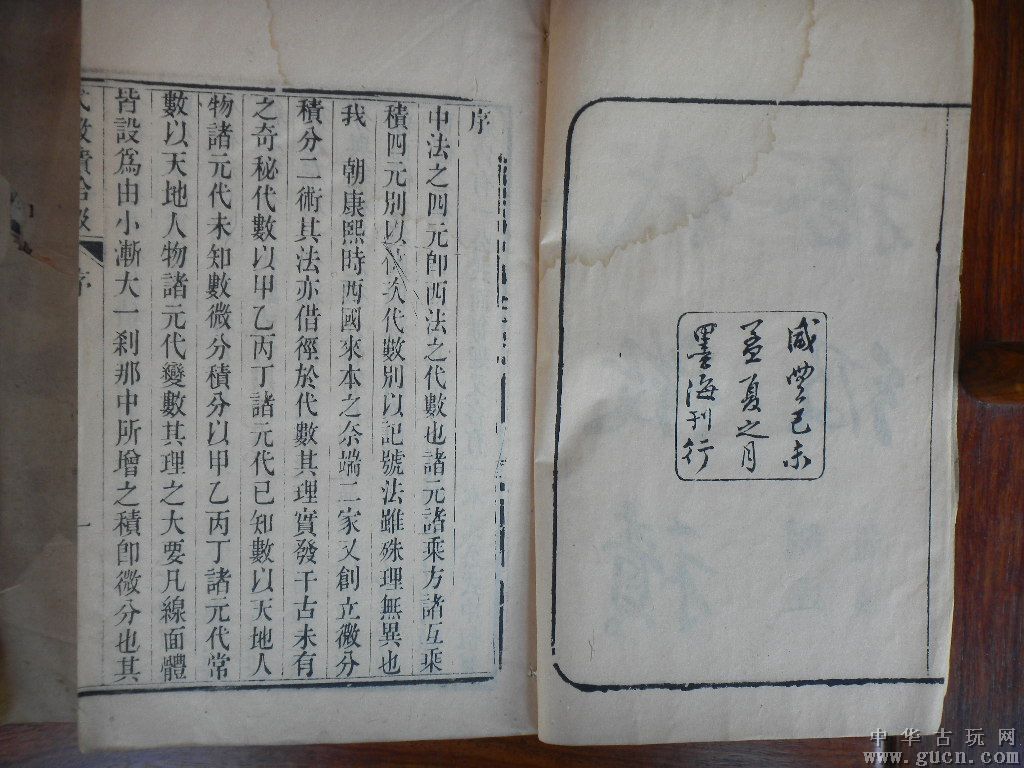 咸豐己未
孟夏之月
墨海刊行
序
中法之四元卽西法之代數也諸元諸乘方諸互乘
積四元別以位次代數別以記號法雖殊理無異也
我 朝康熙時西國來本之奈端二家又創立微分
積分二術其法亦借徑於代數其理實發千古未有
之奇秘代數以甲乙丙丁諸元代已知數以天地人
物諸元代未知數微分積分以甲乙丙丁諸元代常
數以天地人物諸元代變數其理之大要凡線面體
皆設爲由小漸大一剎那中所增之積卽微分也其
代微積拾級 序 一
中华古玩网
www.gucn.com